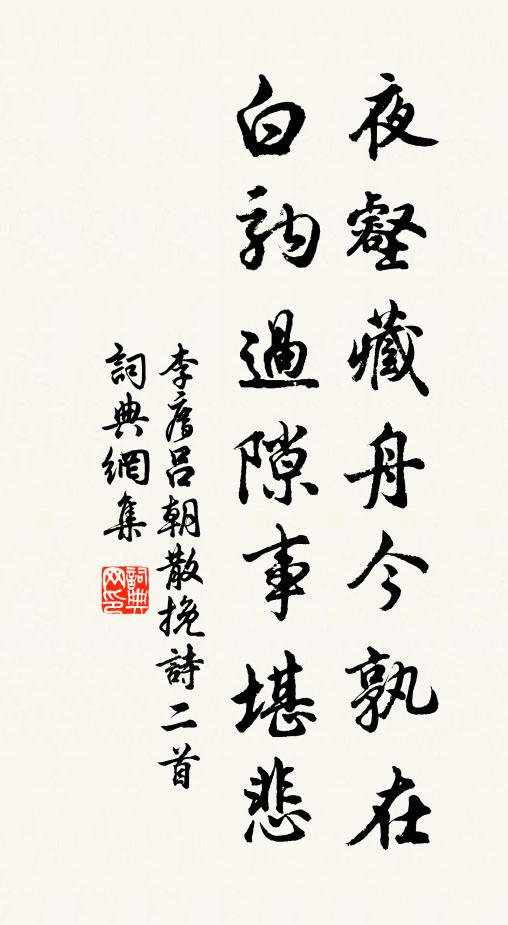 夜壑藏舟今孰在
白駒過隙事堪悲
李廌呂朝散挽詩二首
詞典網集
詞典
网印